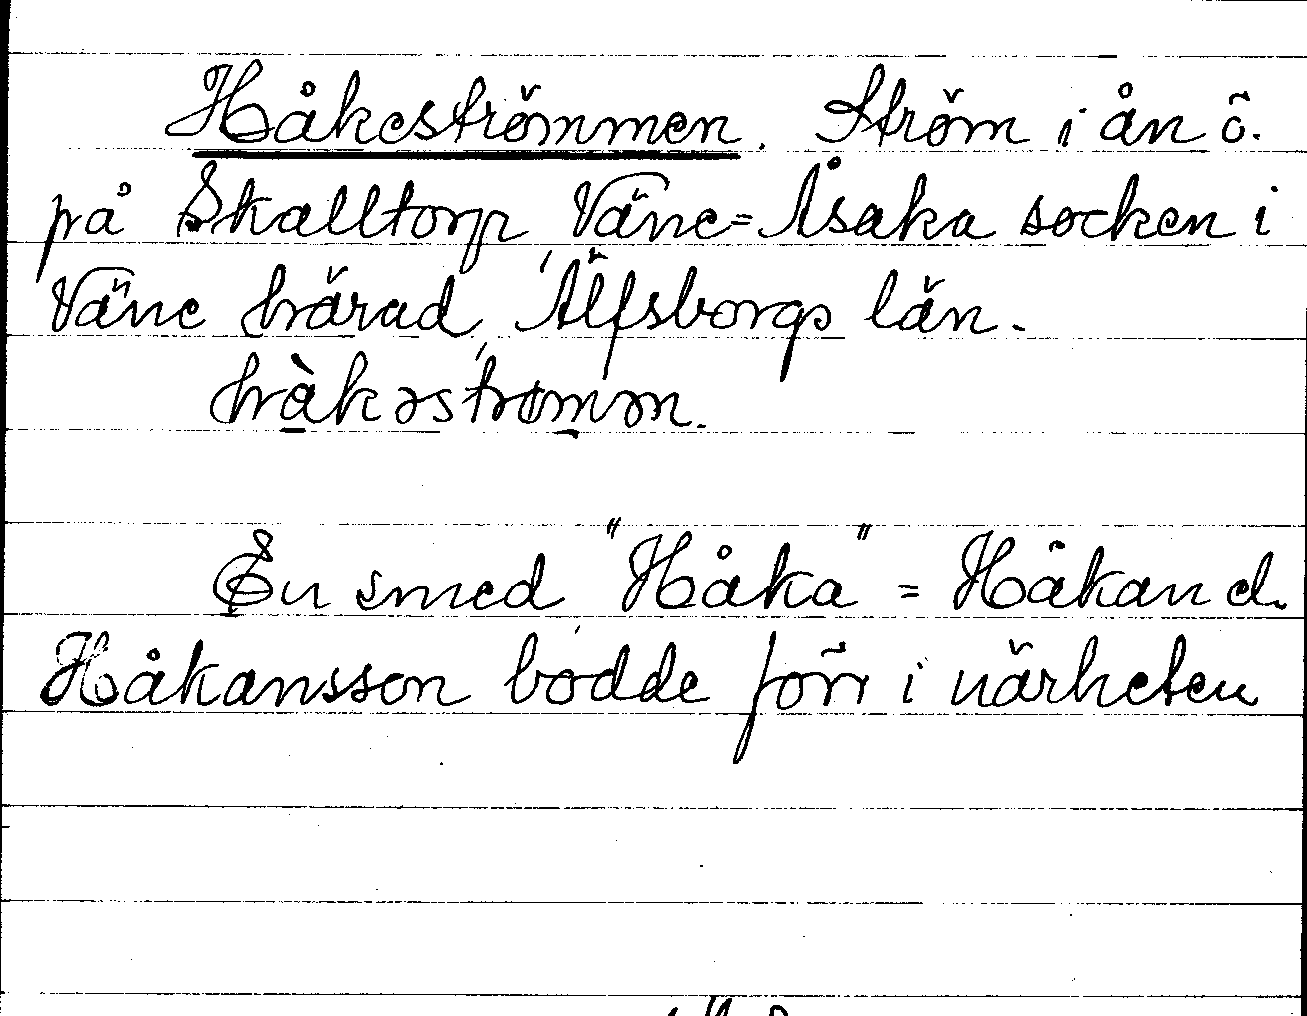 Håkeströmmen. Ström i ån ö.
på Skalltorp, Väne=Åsaka socken i
Väne härad, Älfsborgs län.
hàkəstrømən.
En smed "Håka" = Håkan el.
Håkansson bodde förr i närheten